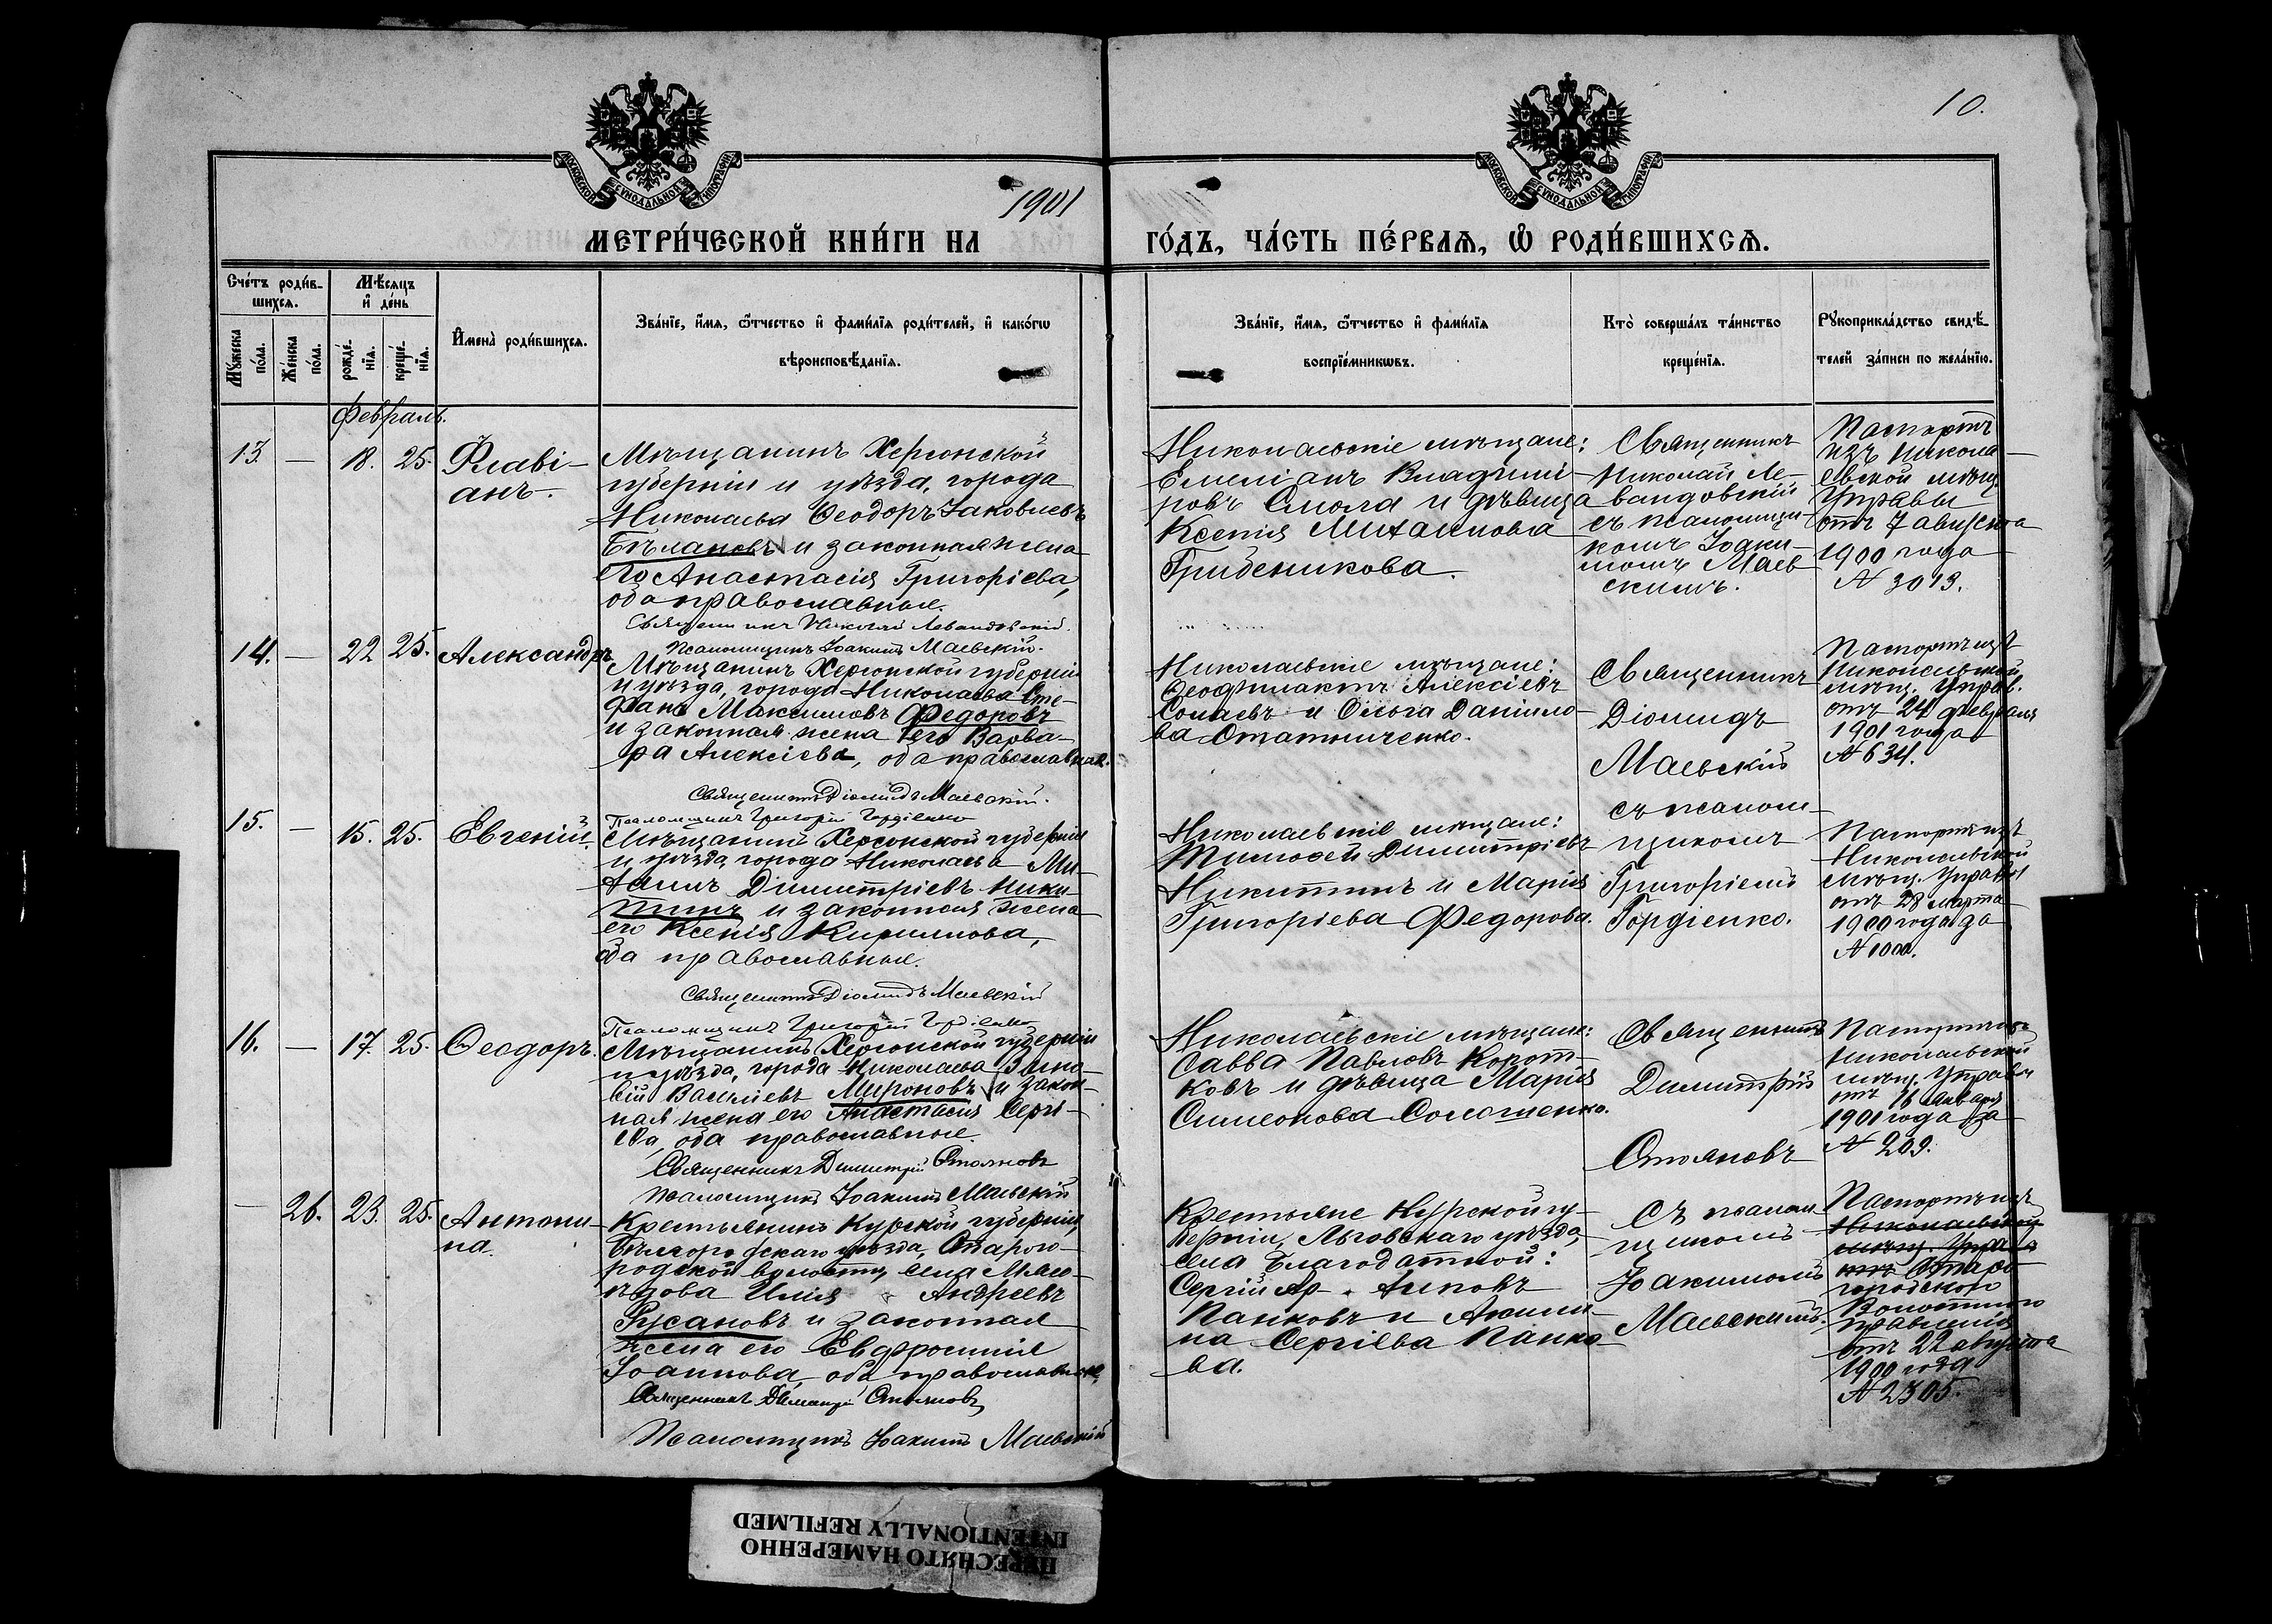 10.
МОСКОВСКОЙ СѴНОДАЛЬНОЙ ТИПОГРАФІИ
МОСКОВСКОЙ СѴНОДАЛЬНОЙ ТИПОГРАФІИ
1901
МЕТРИ́ЧЕСКОЙ КНИ́ГИ НА
ГО́ДЪ, ЧА́СТЬ ПЕ́РВАЯ, Ѽ РОДИ́ВШИХСЯ.
Сче́тъ роди́в-
шихся.
Мѣ́сяцъ
и҆ де́нь
Мꙋ́жеска
по́ла.
Же́нска
по́ла.
рожде́-
нїѧ.
креще́-
нїѧ.
И҆мена̀ роди́вшихся.
Зва́нїе, и҆́мя, ѻ҆́тчество и҆ фами́лїѧ роди́телей, и҆ како́гѡ
вѣроисповѣ́данїѧ.
Зва́нїе, и҆́мя, ѻ҆́тчество и҆ фами́лїѧ
воспрїе́мникѡвъ.
Кто̀ соверша́лъ та́инство
креще́нїѧ.
Рꙋкоприкла́дство свидѣ́-
телей за́писи по жела́нїю.
Февраль.
13. — 18. 25. Флаві-
анъ.
Мѣщанинъ Херсонской
губерніи и уѣзда, города
Николаева Ѳеодоръ Іаковлевъ
Бѣлановъ и законная жена
его Анастасія Григоріева,
оба православные.
Священникъ Николай Левандовскій.
Псаломщикъ Іоакимъ Маевскій.
Николаевскіе мѣщане:
Емеліанъ Владимі-
ровъ Смола и дѣвица
Ксенія Михаилова
Грибеникова.
Священникъ
Николай Ле-
вандовскій
съ псаломщи-
комъ Іоаки-
момъ Маев-
скимъ.
Паспортъ
изъ Никола-
евской мѣщ.
Управы
отъ 7 августа
1900 года
№ 3013.
14. — 22 25. Александръ
Мѣщанинъ Херсонской губерніи
и уѣзда, города Николаева Сте-
фанъ Максимовъ Федоровъ
и законная жена его Варва-
ра Алексіева, оба православные.
Священникъ Діомидъ Маевскій.
Псаломщикъ Григорій Гордіенко
Николаевскіе мѣщане:
Ѳеофилактъ Алексіевъ
и Ольга Даніило-
ва Статниченко.
Священникъ
Діомидъ
Маевскій
съ псалом-
щикомъ
Григоріемъ
Гордіенко.
Паспортъ изъ
Николаевской
мѣщ. Управ.
отъ 24 февраля
1901 года
№ 634.
15. — 15. 25. Евгеній.
Мѣщанинъ Херсонской губерніи
и уѣзда, города Николаева Ми-
хаилъ Димитріевъ Ники-
тинъ и законная жена
его Ксенія Кириллова,
оба православные.
Священникъ Діомидъ Маевскій
Псаломщикъ Григорій Гордіенко
Николаевскіе мѣщане:
Тимоѳей Димитріевъ
Никитинъ и Марія
Григоріева Федорова.
Паспортъ изъ
Николаевской
мѣщ. Управы
отъ 28 марта
1900 года за
№ 1000.
16. — 17. 25. Ѳеодоръ.
Мѣщанинъ Херсонской губерніи
и уѣзда, города Николаева Зино-
вій Василіевъ Мироновъ и закон-
ная жена его Анастасія Сергі-
ева, оба православные.
Священникъ Димитрій Стояновъ
Псаломщикъ Іоакимъ Маевскій
Николаевскіе мѣщане:
Савва Павловъ Корот-
ковъ и дѣвица Марія
Симеонова Соломенко.
Священникъ
Димитрій
Стояновъ
съ псалом-
щикомъ
Іоакимомъ
Маевскимъ.
Паспортъ изъ
Николаевской
мѣщ. Управы
отъ 16 января
1901 года за
№ 209.
— 26. 23. 25. Антони-
на.
Крестьянинъ Курской губерніи,
Бѣлгородскаго уѣзда, Старого-
родской волости, села Мясо-
ѣдова Илія Андреевъ
Русановъ и законная
жена его Евфросинія
Іоаннова, оба православные.
Священникъ Димитрій Стояновъ
Псаломщикъ Іоакимъ Маевскій
Крестьяне Курской гу-
берніи, Льговскаго уѣзда,
села Благодатной:
Сергій
Панковъ и Акили-
на Сергіева Панко-
ва.
Паспортъ изъ
Николаевской
мѣщ. Управы
отъ Старо-
городского
Волостного
правленія
отъ 22 августа
1900 года
№ 2305.
ПЕРЕСНЯТО НАМЕРЕННО
INTENTIONALLY REFILMED